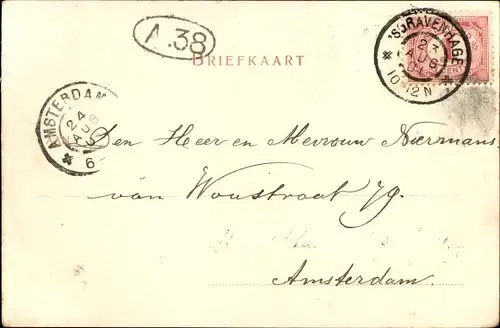 A.38
BRIEFKAART
'SGRAVENHAGE
23
AUG
10-12N
CENT
AMSTERDAM
24
AUG
6
Den Heer en Mevrouw Niermans
van Woustraat 79.
Amsterdam.